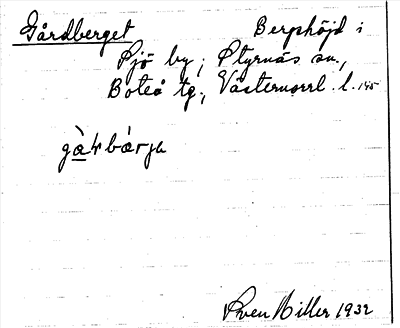 Gårdberget Berghöjd i
Sjö by, Styrnäs sn.,
Boteå tg., Västernorrl. l.
gàɽbærjɐ
Sven Hiller 1932